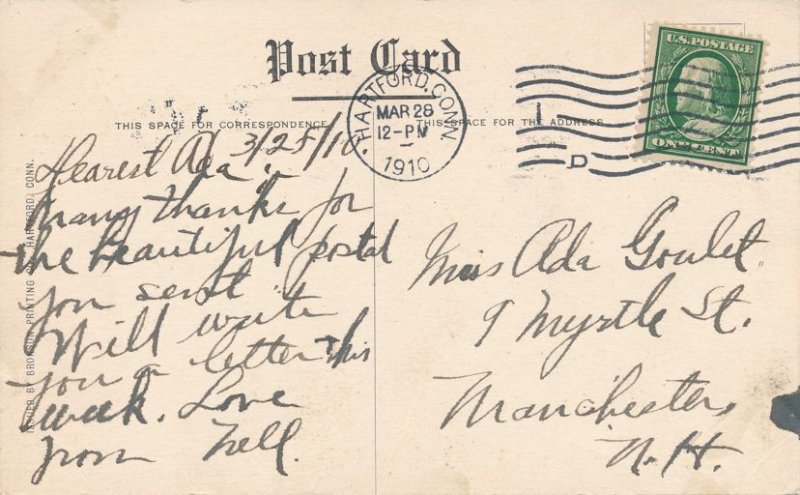 Post Card
THIS SPACE FOR CORRESPONDENCE
THIS SPACE FOR THE ADDRESS
HARTFORD, CONN.
MAR 28
12-PM
1910
D
U.S. POSTAGE
ONE CENT
ISSUED BY BRONSON PRINTING CO. HARTFORD, CONN.
Dearest Ada, 3/25/10
Many thanks for
the beautiful postal
you sent.
Will write
you a letter this
week. Love
from Nell.
Miss Ada Goulet
9 Myrtle St.
Manchester
N.H.